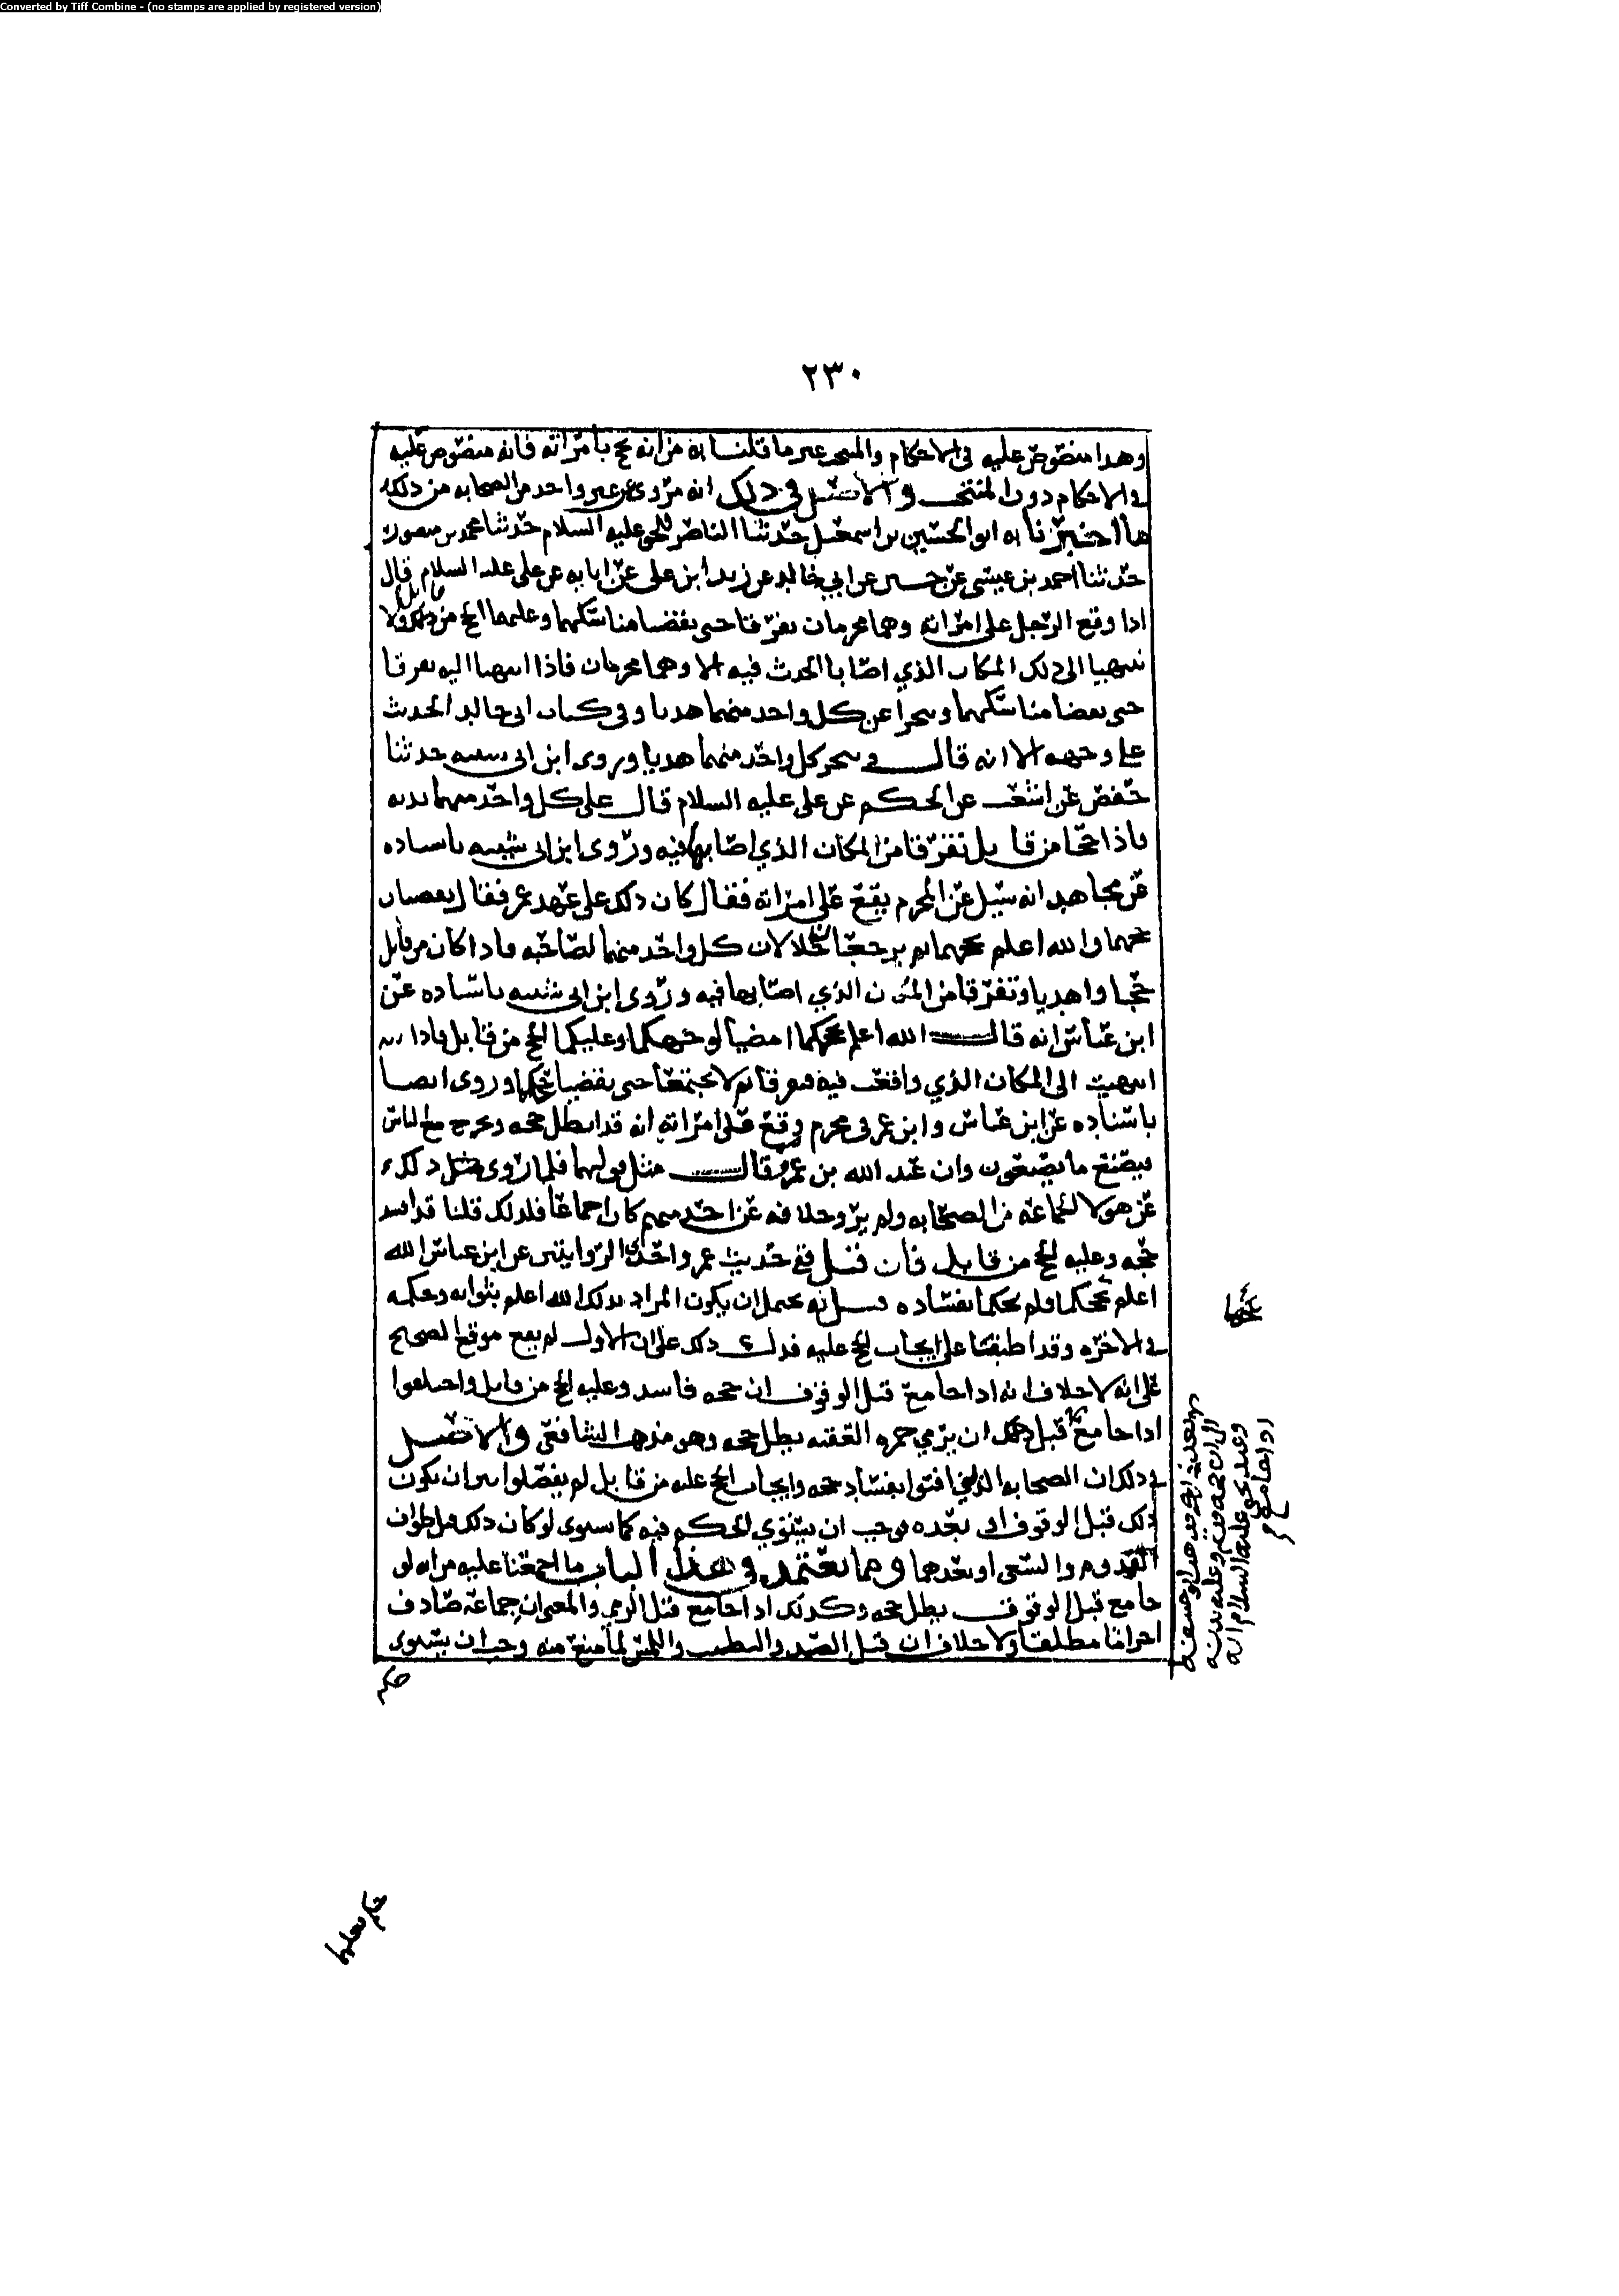 Converted by Tiff Combine - (no stamps are applied by registered version)
٢٣٠
وهدا منصوص عليه في الاحكام والمنتخب غير ما قلنا به من انه يحج بامراته فانه منصوص عليه
في الاحكام دون المنتخب والاصل في دلك انه مروي عن غير واحد من الصحابه من دلك
ما اخبرنا به ابو الحسين بن اسمعيل حدثنا الناصر للحق عليه السلام حدثنا محمد بن منصور
حدثنا احمد بن عيسى عن حسين عن ابي خالد عن زيد ابن علي عن ابايه عن علي عليه السلام قال
ادا وقع الرجل على امراته وهما محرمان تفرقا حتى يقضيا مناسكهما وعليهما الحج من قابل ولا
ينتهيا الى دلك المكان الذي اصابا الحدث فيه الا وهما محرمان فاذا انتهيا اليه تفرقا
حتى يقضيا مناسكهما وينحرا عن كل واحد منهما هديا وفي كتاب ابي خالد الحديث
على وجهه الا انه قال وينحر كل واحد منهما هديا وروى ابن ابي شيبه حدثنا
حفص عن اشعث عن الحكم عن علي عليه السلام قال على كل واحد منهما بدنه
فاذا حجا من قابل تفرقا من المكان الذي اصابها فيه وروى ابن ابي شيبه باسناده
عن مجاهد انه سيل عن المحرم يقع على امراته فقال كان دلك على عهد عمر فقال يقضيان
حجهما والله اعلم بحجهما ثم يرجعان حلالا كل واحد منهما لصاحبه فادا كان من قابل
حجا واهديا وتفرقا من المكان الذي اصابها فيه وروى ابن ابي شيبه باسناده عن
ابن عباس انه قال الله اعلم بحجكما امضيا لوجهكما وعليكما الحج من قابل فادا
انتهيت الى المكان الذي واقعت فيه فتفرقا ثم لا تجتمعا حتى تقضيا حجكما وروى ايضا
باسناده عن ابن عباس وابن عمر في محرم وقع على امراته انه قد ابطل حجه ويخرج مع الناس
فيصنع ما يصنعون وان عبد الله بن عمرو قال مثل قولهما فلما روى مثل دلك
عن هولا الجماعه من الصحابه ولم يرو خلافه عن احد منهم كان اجماعا فلدلك قلنا قد افسد
حجه وعليه الحج من قابل فان قيل ففي حديث عمر واحدى الروايتين عن ابن عباس الله
اعلم بحجكما ولم يحكما بفساده قيل له يحتمل ان يكون المراد بدلك الله اعلم بثوابه وحكمه
في الاخره وقد اطبقا على ايجاب الحج عليه فدل دلك على ان الاول لم يقع موقع الصحيح
على انه لا خلاف انه ادا جامع قبل الوقوف ان حجه فاسد وعليه الحج من قابل واختلفوا
ادا جامع قبل ان يرمي جمره العقبه بطل حجه وهو مذهب الشافعي والاصل
في دلك ان الصحابه الذين افتوا بفساد حجه وايجاب الحج عليه من قابل لم يفصلوا بين ان يكون
دلك قبل الوقوف او بعده فوجب ان يستوي الحكم فيه كما يستوى لو كان دلك قبل طواف
القدوم والسعى او بعدهما ومما يعتمد في هذا الباب ما اجمعنا عليه من انه لو
جامع قبل الوقوف بطل حجه وكدلك ادا جامع قبل الرمي والمعنى ان جماعه صادف
احراما مطلقا ولا خلاف ان قتل الصيد والطيب واللبس لما منع منه وجب ان يستوى
حكم
وعند يحيى عليه السلام انه
ادا جامع
حكم